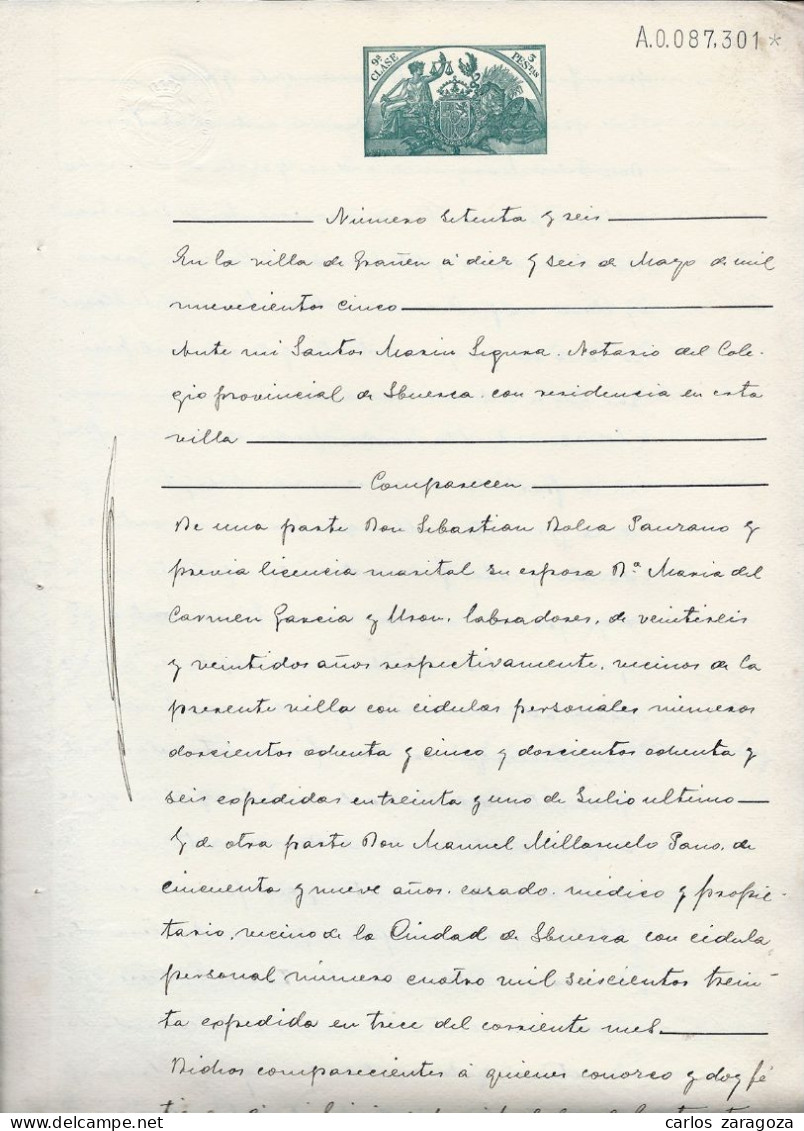 A.0.087,301*
9ª CLASE
3 PESTAS
Número setenta y seis
En la villa de Grañen á diez y seis de Mayo de mil
novecientos cinco
Ante mi Santos Marin Segura. Notario del Cole-
gio provincial de Huesca con residencia en esta
villa
Comparecen
De una parte Don Sebastian Bolea Panzano y
previa licencia marital su esposa Dª Maria del
Carmen Garcia y Uson, labradores, de veintiseis
y veintidos años respectivamente, vecinos de la
presente villa con cédulas personales números
doscientos ochenta y cinco y doscientos ochenta y
seis expedidas en treinta y uno de Julio ultimo
Y de otra parte Don Manuel Millaruelo Pano, de
cincuenta y nueve años, casado, médico y propie-
tario, vecino de la Ciudad de Huesca con cédula
personal número cuatro mil seiscientos trein-
ta expedida en trece del corriente mes
Dichos comparecientes á quienes conozco y doy fé
carlos_zaragoza